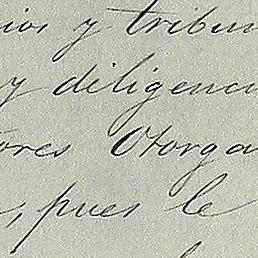 ios y tribun
y diligenci
ores Otorga
, pues le